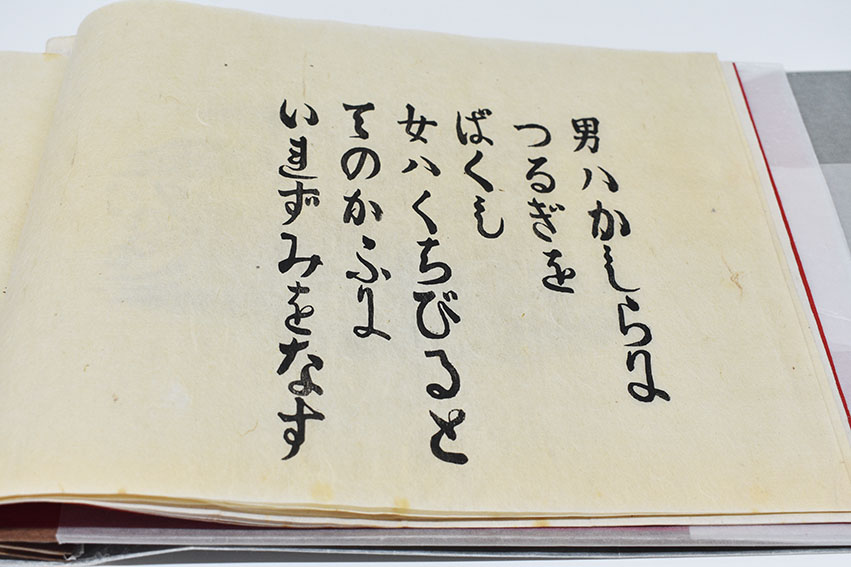 男ハかしらに
つるぎを
ばくし
女ハくちびると
てのかふに
いれずみをなす